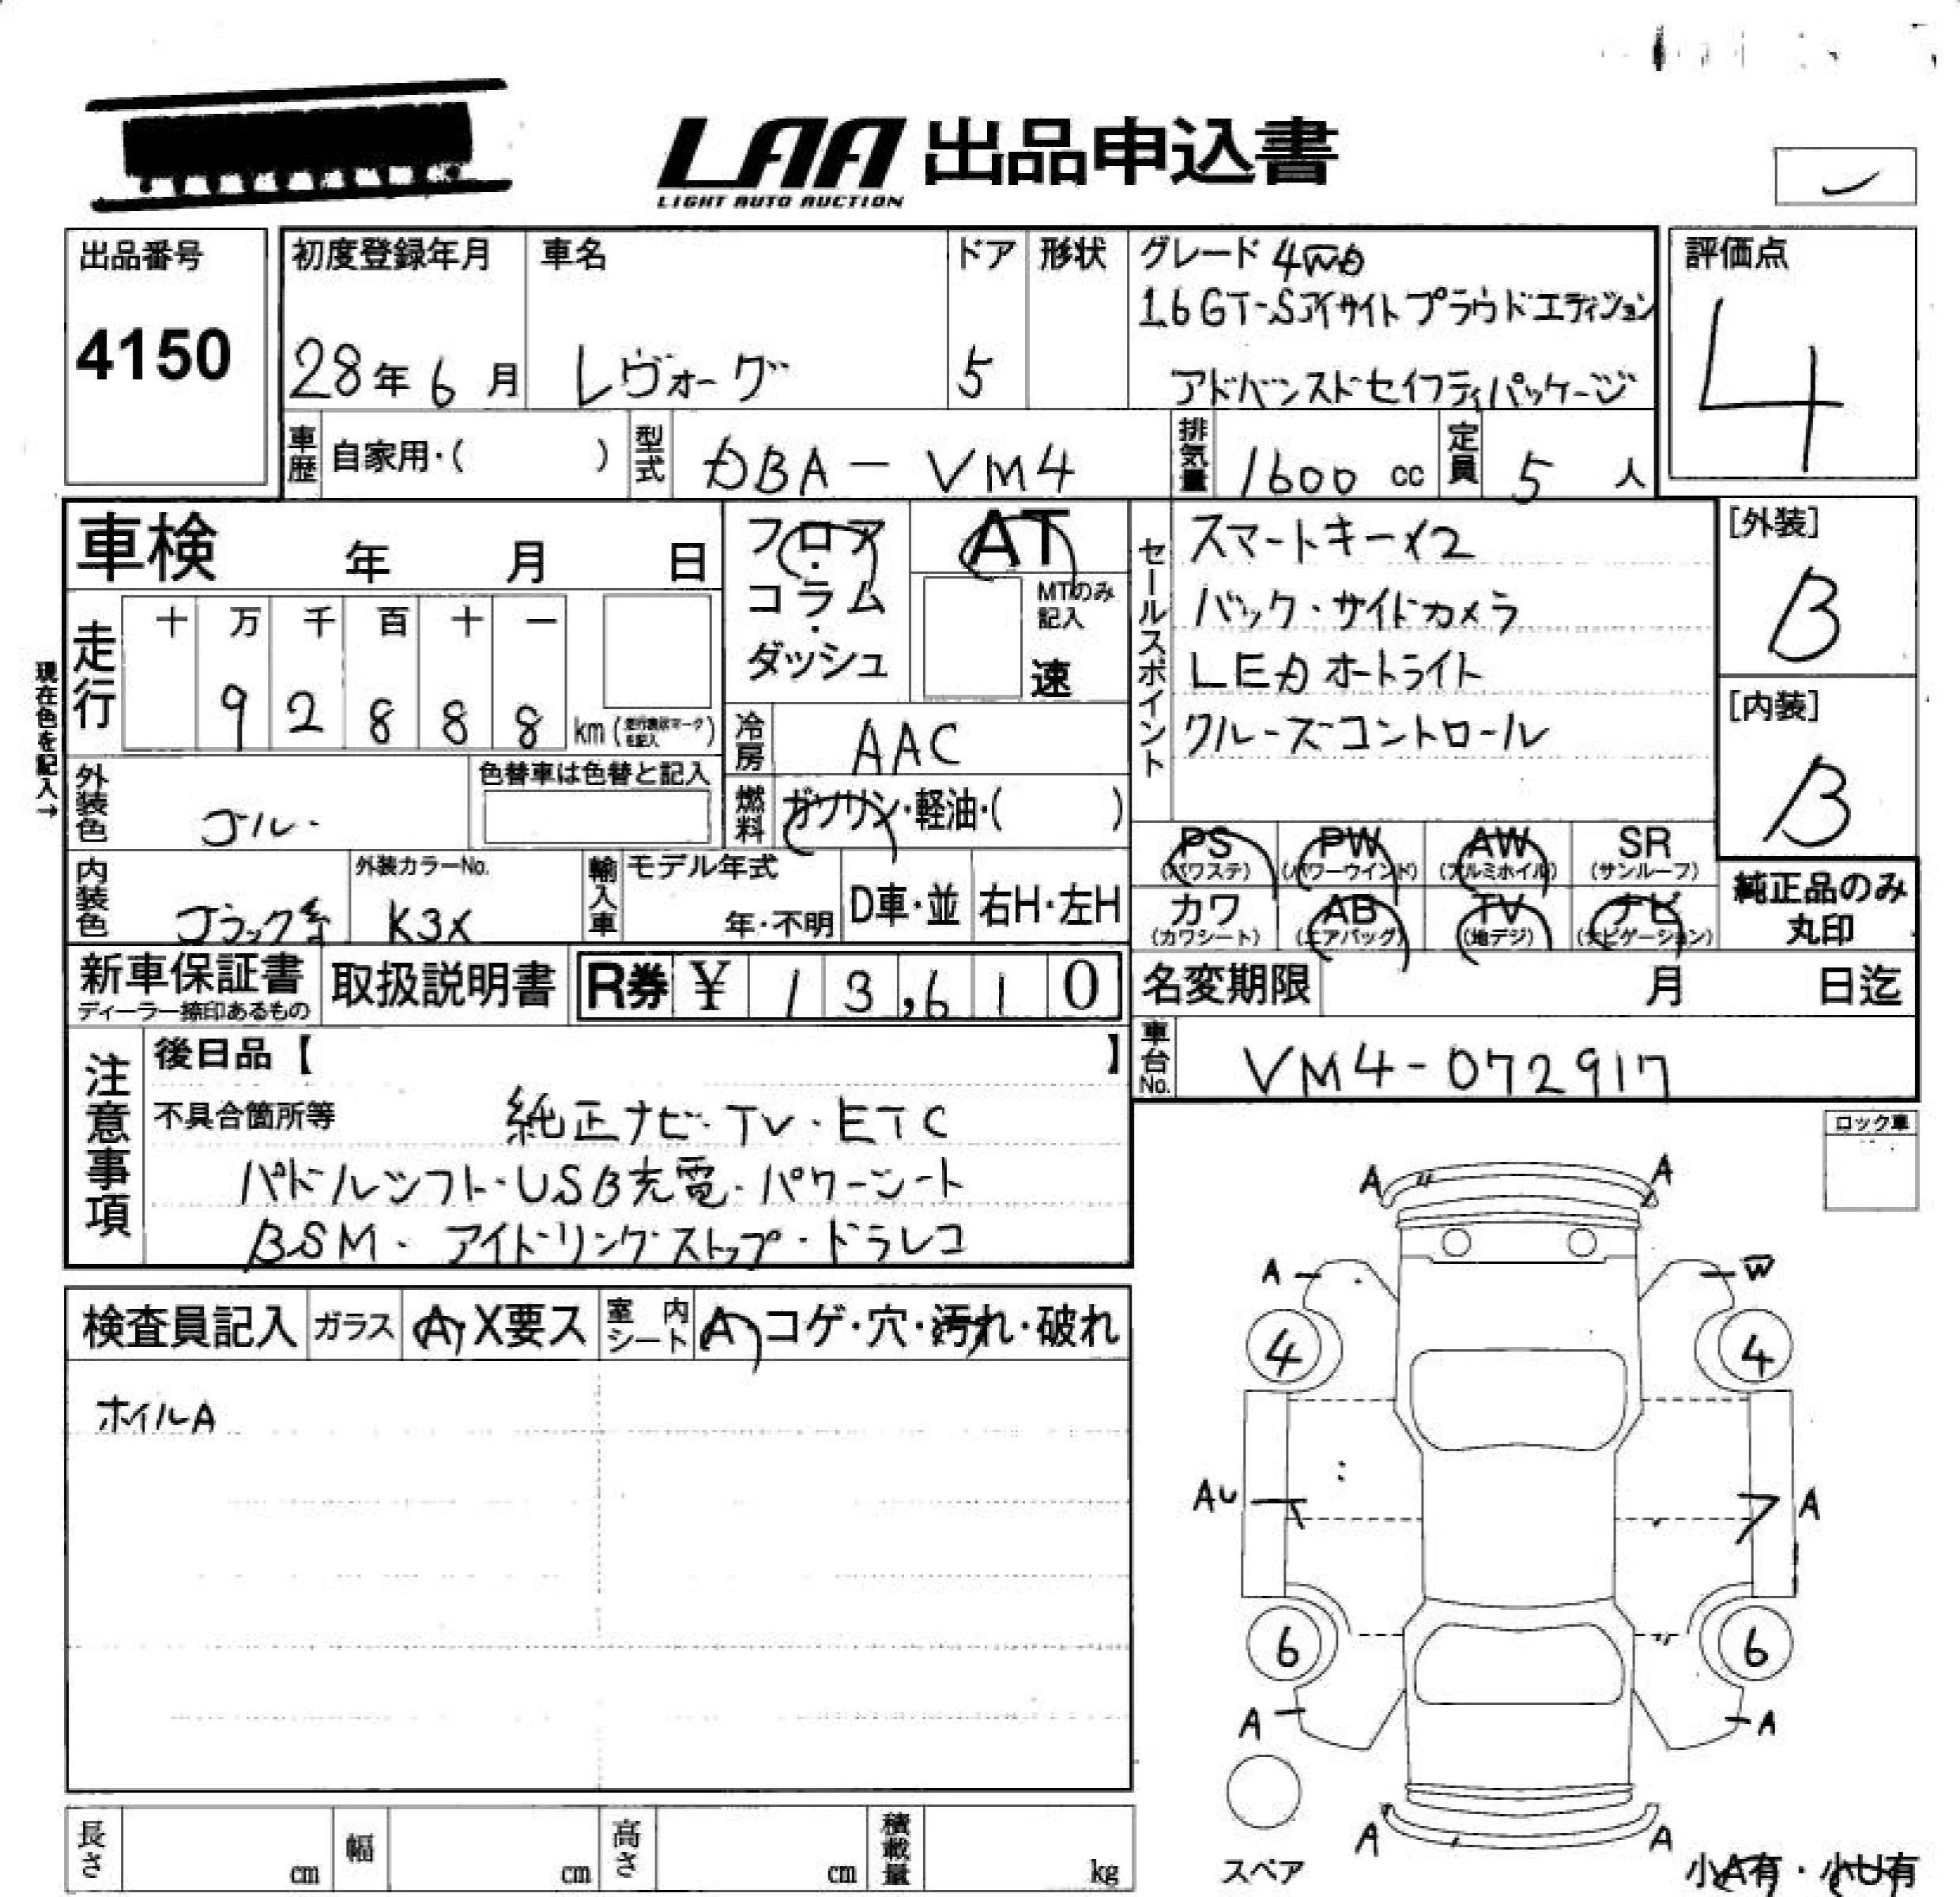 LAA 出品申込書
LIGHT AUTO AUCTION
出品番号
4150
初度登録年月
28年6月
車名
レヴォーグ
ドア
5
形状
グレード 4WD
1.6GT-Sアイサイト プラウドエディション
アドバンスドセイフティパッケージ
評価点
4
車歴
自家用・( )
型式
DBA-VM4
排気量
1600 cc
定員
5 人
車検 年 月 日
フロア
・
コラム
・
ダッシュ
AT
MTのみ
記入
速
走行
十 万 千 百 十 一
9 2 8 8 8 km (走行機歴マークを記入)
現在色を記入→
冷房
AAC
外装色
ゴルー
色替車は色替と記入
燃料
ガソリン・軽油・( )
内装色
ブラック系
外装カラーNo.
K3X
輸入車
モデル年式
年・不明
D車・並
右H・左H
セールスポイント
スマートキー×2
バック・サイドカメラ
LEDオートライト
クルーズコントロール
[外装]
B
[内装]
B
PS
(パワステ)
PW
(パワーウインド)
AW
(アルミホイル)
SR
(サンルーフ)
カワ
(カワシート)
AB
(エアバッグ)
TV
(地デジ)
ナビ
(ナビゲーション)
純正品のみ
丸印
新車保証書
ディーラー捺印あるもの
取扱説明書
R券 ¥ 1 3,6 1 0
名変期限 月 日迄
車台No.
VM4-072917
注意事項
後日品【 】
不具合箇所等 純正ナビ・TV・ETC
パドルシフト・USB充電・パワーシート
BSM・アイドリングストップ・ドラレコ
ロック車
検査員記入
ガラス
A・X要ス
室内シート
A・コゲ・穴・汚れ・破れ
ホイルA
A A
A W
4 4
AU A
6 6
A A
A A
スペア
小A有・小U有
長さ cm
幅 cm
高さ cm
積載量 kg